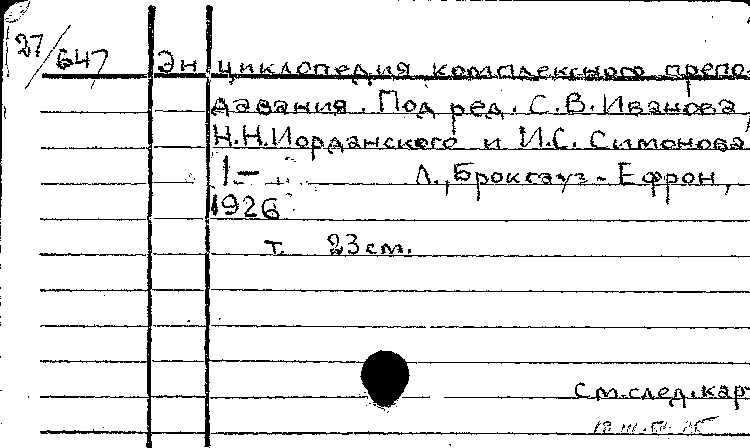 27/647 Энциклопедия комплексного препо-
давания. Под ред. С.В.Иванова,
Н.Н.Иорданского и И.С. Симонова
1- Л., Брокгауз-Ефрон,
1926
т. 23см.
См.след.кар